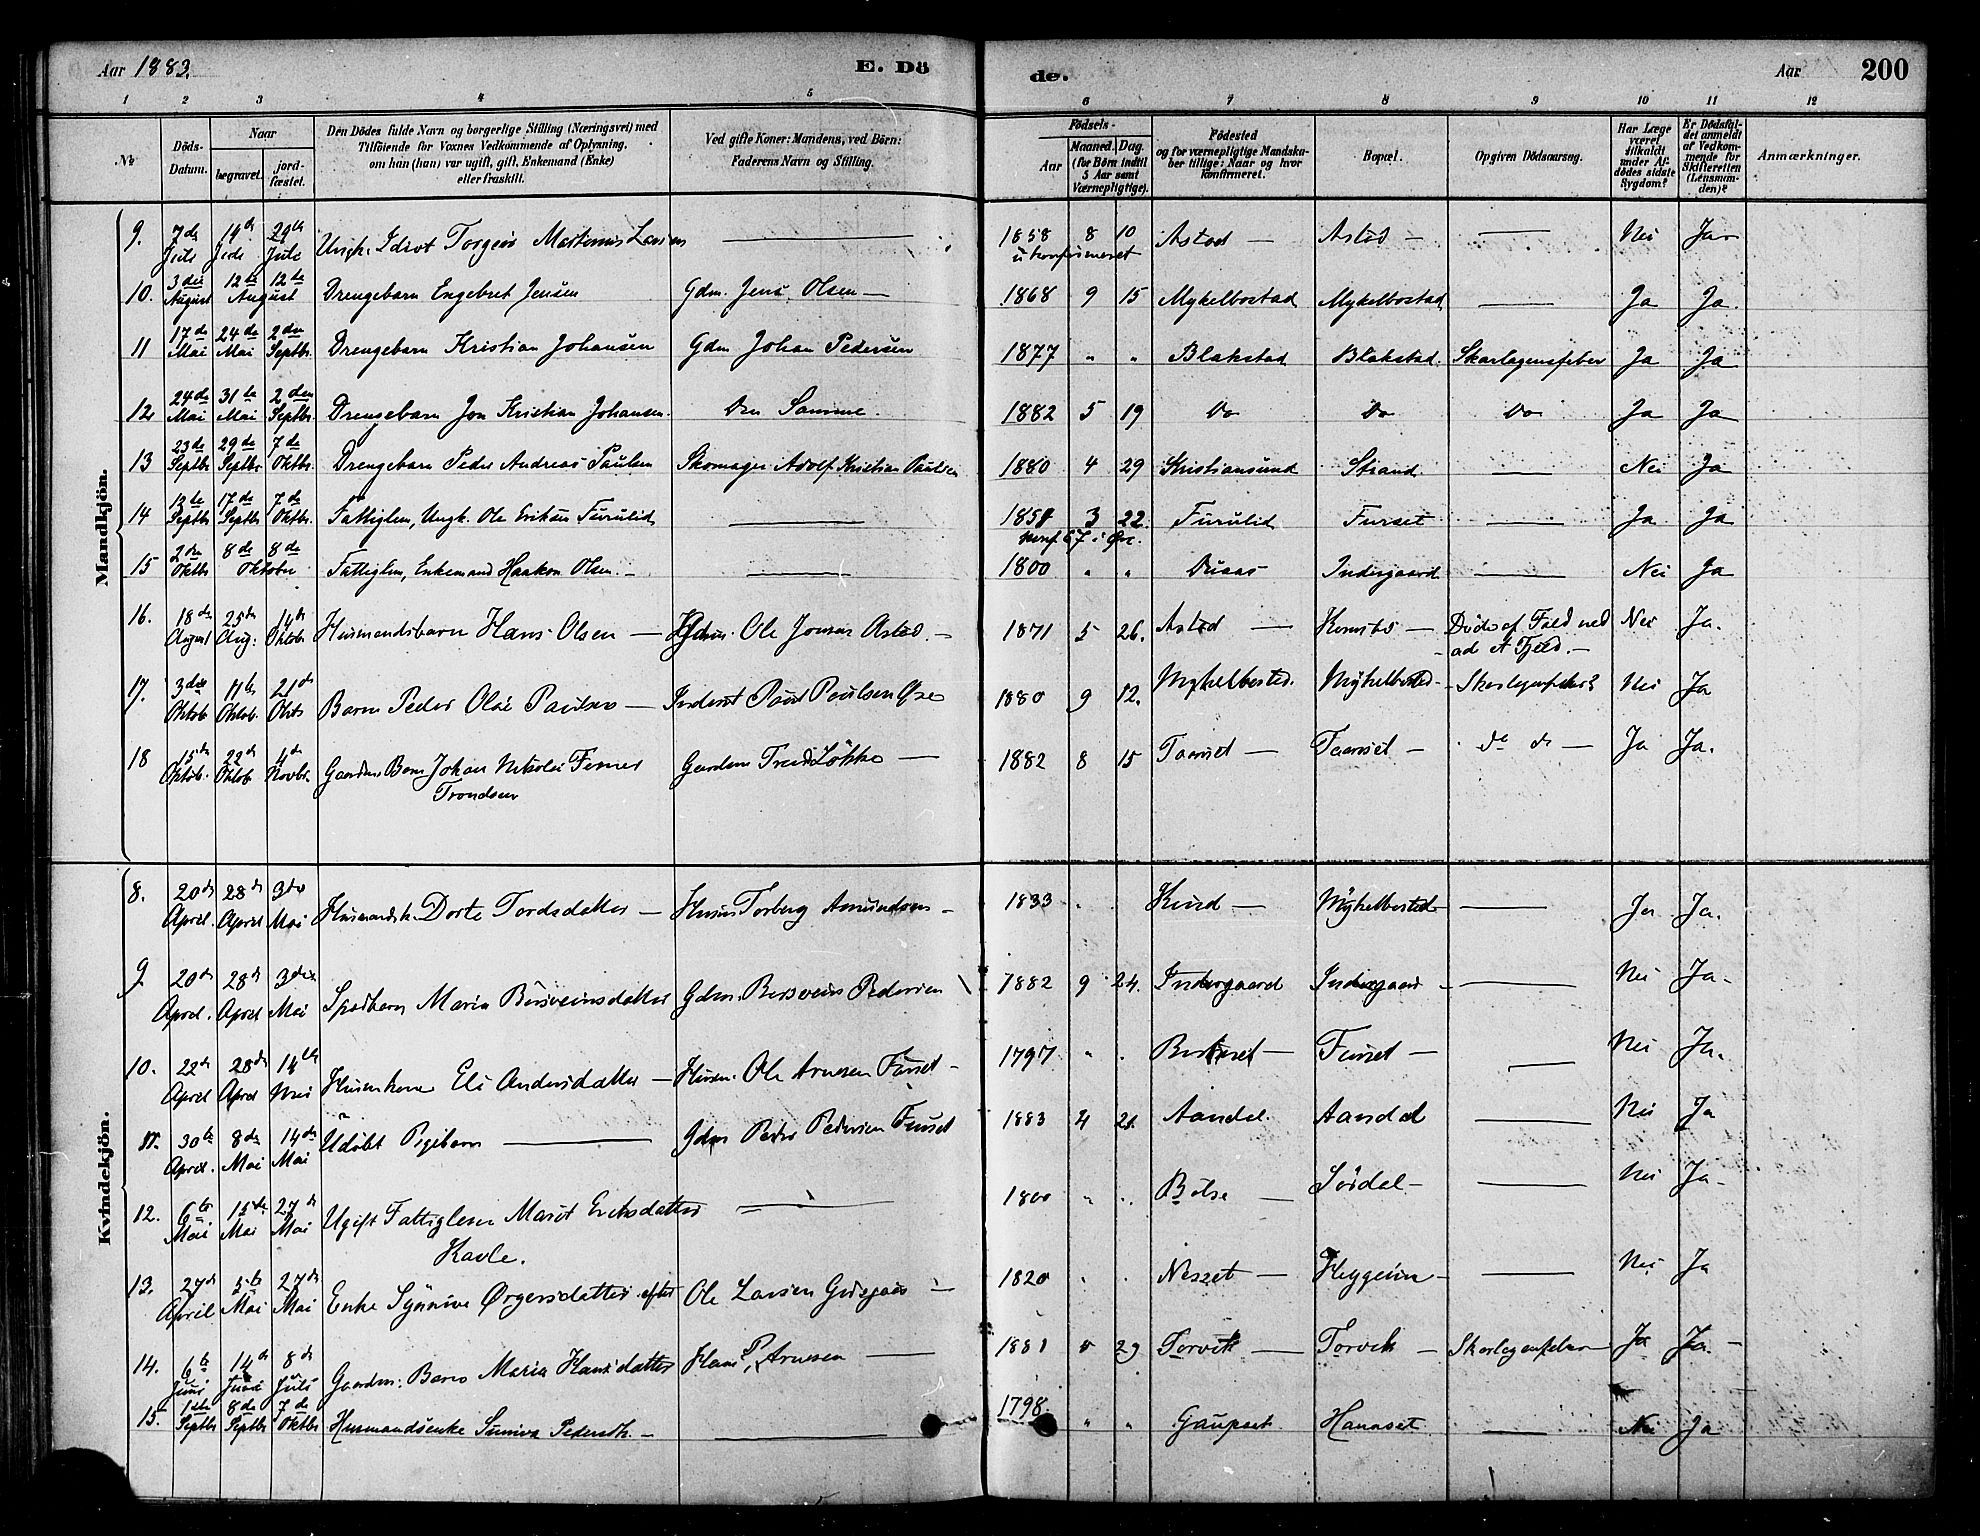 Aar 1883.
E. Dö
de.
Aar
200
1 2 3 4 5 6 7 8 9 10 11 12
No
Döds-Datum.
Naar
begravet.
jord-fæstet.
Den Dödes fulde Navn og borgerlige Stilling (Næringsvei) med
Tilföiende for Voxnes Vedkommende af Oplysning,
om han (hun) var ugift, gift, Enkemand (Enke)
eller fraskilt.
Ved gifte Koner: Mandens, ved Börn:
Faderens Navn og Stilling.
Födsels-
Aar
Maaned.
Dag.
(for Börn indtil
5 Aar samt
Værnepligtige).
Födested
og for værnepligtige Mandska-
ber tillige: Naar og hvor
konfirmeret.
Bopæl.
Opgiven Dödsaarsag.
Har Læge
været
tilkaldt
under Af-
dödes sidste
Sygdom?
Er Dödsfal-
det anmeldt
af Vedkom-
mende for
Skifteretten
(Lensman-
den)?
Anmærkninger.
Mandkjön.
9. 7de Juli 19de Juli 29de Juli Ungk. Idiot Torgeir Martinus Larsen — 1858 8 10 Astad — Astad — — Nei Ja
ukonfirmeret
10. 3die August 12te 12te August Drengebarn Engebret Jensen Gdm. Jens Olsen — 1868 9 15 Mykelbostad Mykelbostad — Ja Ja
11 17de Mai 24de Mai 2den Septbr. Drengebarn Kristian Johansen Gdm Johan Pedersen 1877 " " Blakstad Blakstad Skarlagensfeber Ja Ja
12 24de Mai 31te Mai 2den Septbr. Drengebarn Jon Kristian Johansen. Den Samme. 1882 5 19 Do Do Do Ja Ja
13 23de Septbr 29de Septbr 7de Oktbr. Drengebarn Peder Andreas Paulsen Skomager Adolf Kristian Paulsen 1880 4 29 Kristiansund Strand — Nei Ja
14 13te Septbr 17de Septbr 7de Oktbr. Fattiglem, Ungk. Ole Eriksen Furulid — 1851 3 22. Furulid Furset — Ja Ja
konf. 67 i Øre.
15 2den Oktbr 8de 8de Oktober Fattiglem, Enkemand Haakon Olsen. — — 1800 " " Duaas Indergaard — Nei Ja
16. 18de August 25de Aug. 14de Oktobr Husmandsbarn Hans Olsen — Ole Jonsen Astad. — 1871 5 26. Astad — — Döde af Fald ned Nei Ja.
ad et Fjeld. —
17. 3die Oktob. 11te Oktob. 21de Oktb Barn Peder Olai Paulsen — Inderst Paul Paulsen Øre 1880 9 12. Mykelbostad. Mykelbostad. Skarlagensfeber? Nei Ja
18 15de Oktob. 22de Oktob. 4de Novbr. Gaardm. Barn Johan Nikolai Ferner Gaardm Løkke — 1882 8 15 — — do do — Ja Ja.
Trondsen
Kvindekjön.
8. 20de April. 28de April 3die Mai Husmandsk. Dorte Tordsdatter — Husm Torberg Amundsen — 1833 . . — Mykelbostad — Ja Ja.
9. 20de April. 28de April 3die Mai Spædbarn Maria Bersveinsdatter Gdm. Bersvein Pedersen 1882 9 24. Indergaard Indergaard — Nei Ja.
10. 22de April 28de April 14de Mai Husmkone Eli Andersdatter — Husm. Ole Arnesen Furset — 1797 " . — Furset — — Nei Ja.
11. 30te April. 8de Mai 14de Mai Udöbt Pigebarn — Gdm Peder Pedersen Furset 1883 4 21. Aandal Aandal — Nei Ja
12. 6te Mai 15de Mai 27de Mai Ugift Fattiglem Marit Eriksdatter — 1800 " . Bolse — Sördal — — Nei Ja.
Kavle.
13. 27de April 5te Mai 27de Mai Enke Synnive Ørgersdatter efter Ole Larsen — 1820 . . Nesset — Heggeim — — Nei Ja
14. 6te Juni 14de Juni 8de Juli Gaardm. Barn Maria Hansdatter Hans P. Arnesen — 1881 29 Torvik — Torvik — Skarlagensfeber Ja Ja. —
15. 1ste Septbr 8de Septbr 7de Oktbr Husmandsenke Suniva Pedersdtr. — — 1798. " " Gaupset Hanaset — Nei Ja